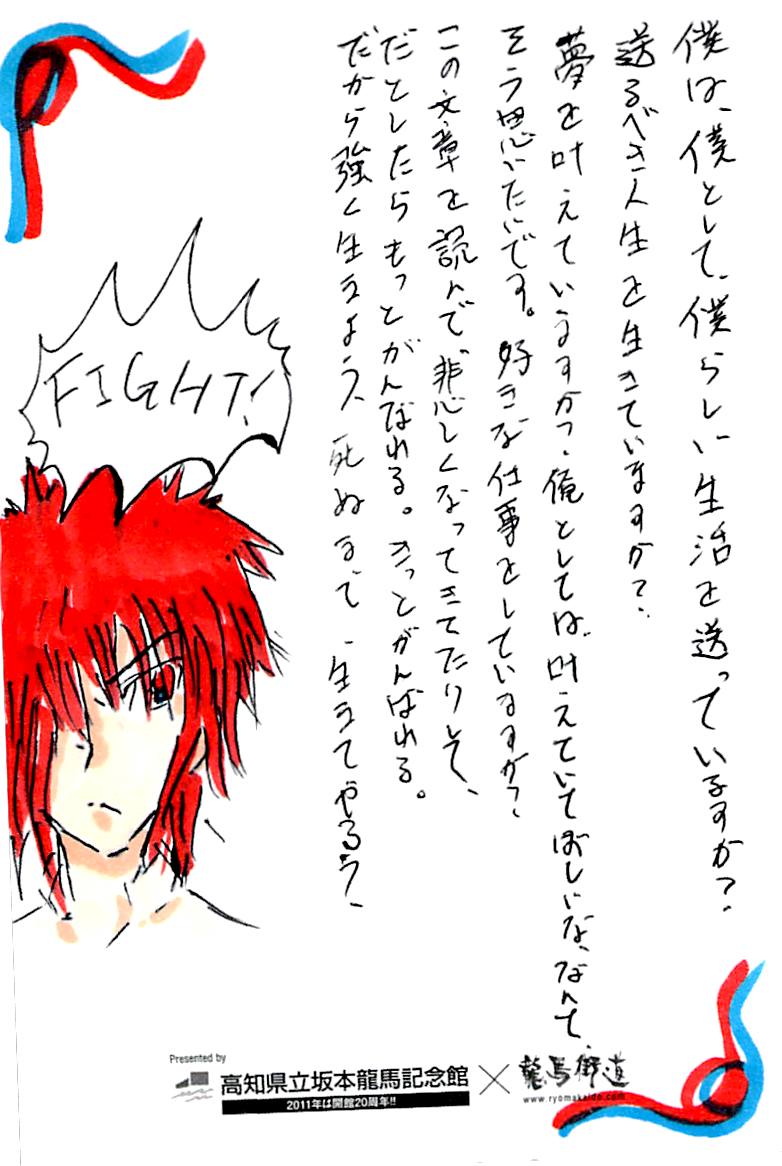 僕は、僕として、僕らしい生活を送っていますか?
送るべき人生を生きていますか?
夢を叶えていますか?俺としては、叶えていてほしいな、なんて、
そう思いたいです。好きな仕事をしていますか?
この文章を読んで悲しくなってきてたりして、
だとしたらもっとがんばれる。きっとがんばれる。
だから強く生きよう、死ぬまで、生きてやろう、
FIGHT!
Presented by
高知県立坂本龍馬記念館×龍馬街道
2011年は開館20周年!!
www.ryomakaido.com